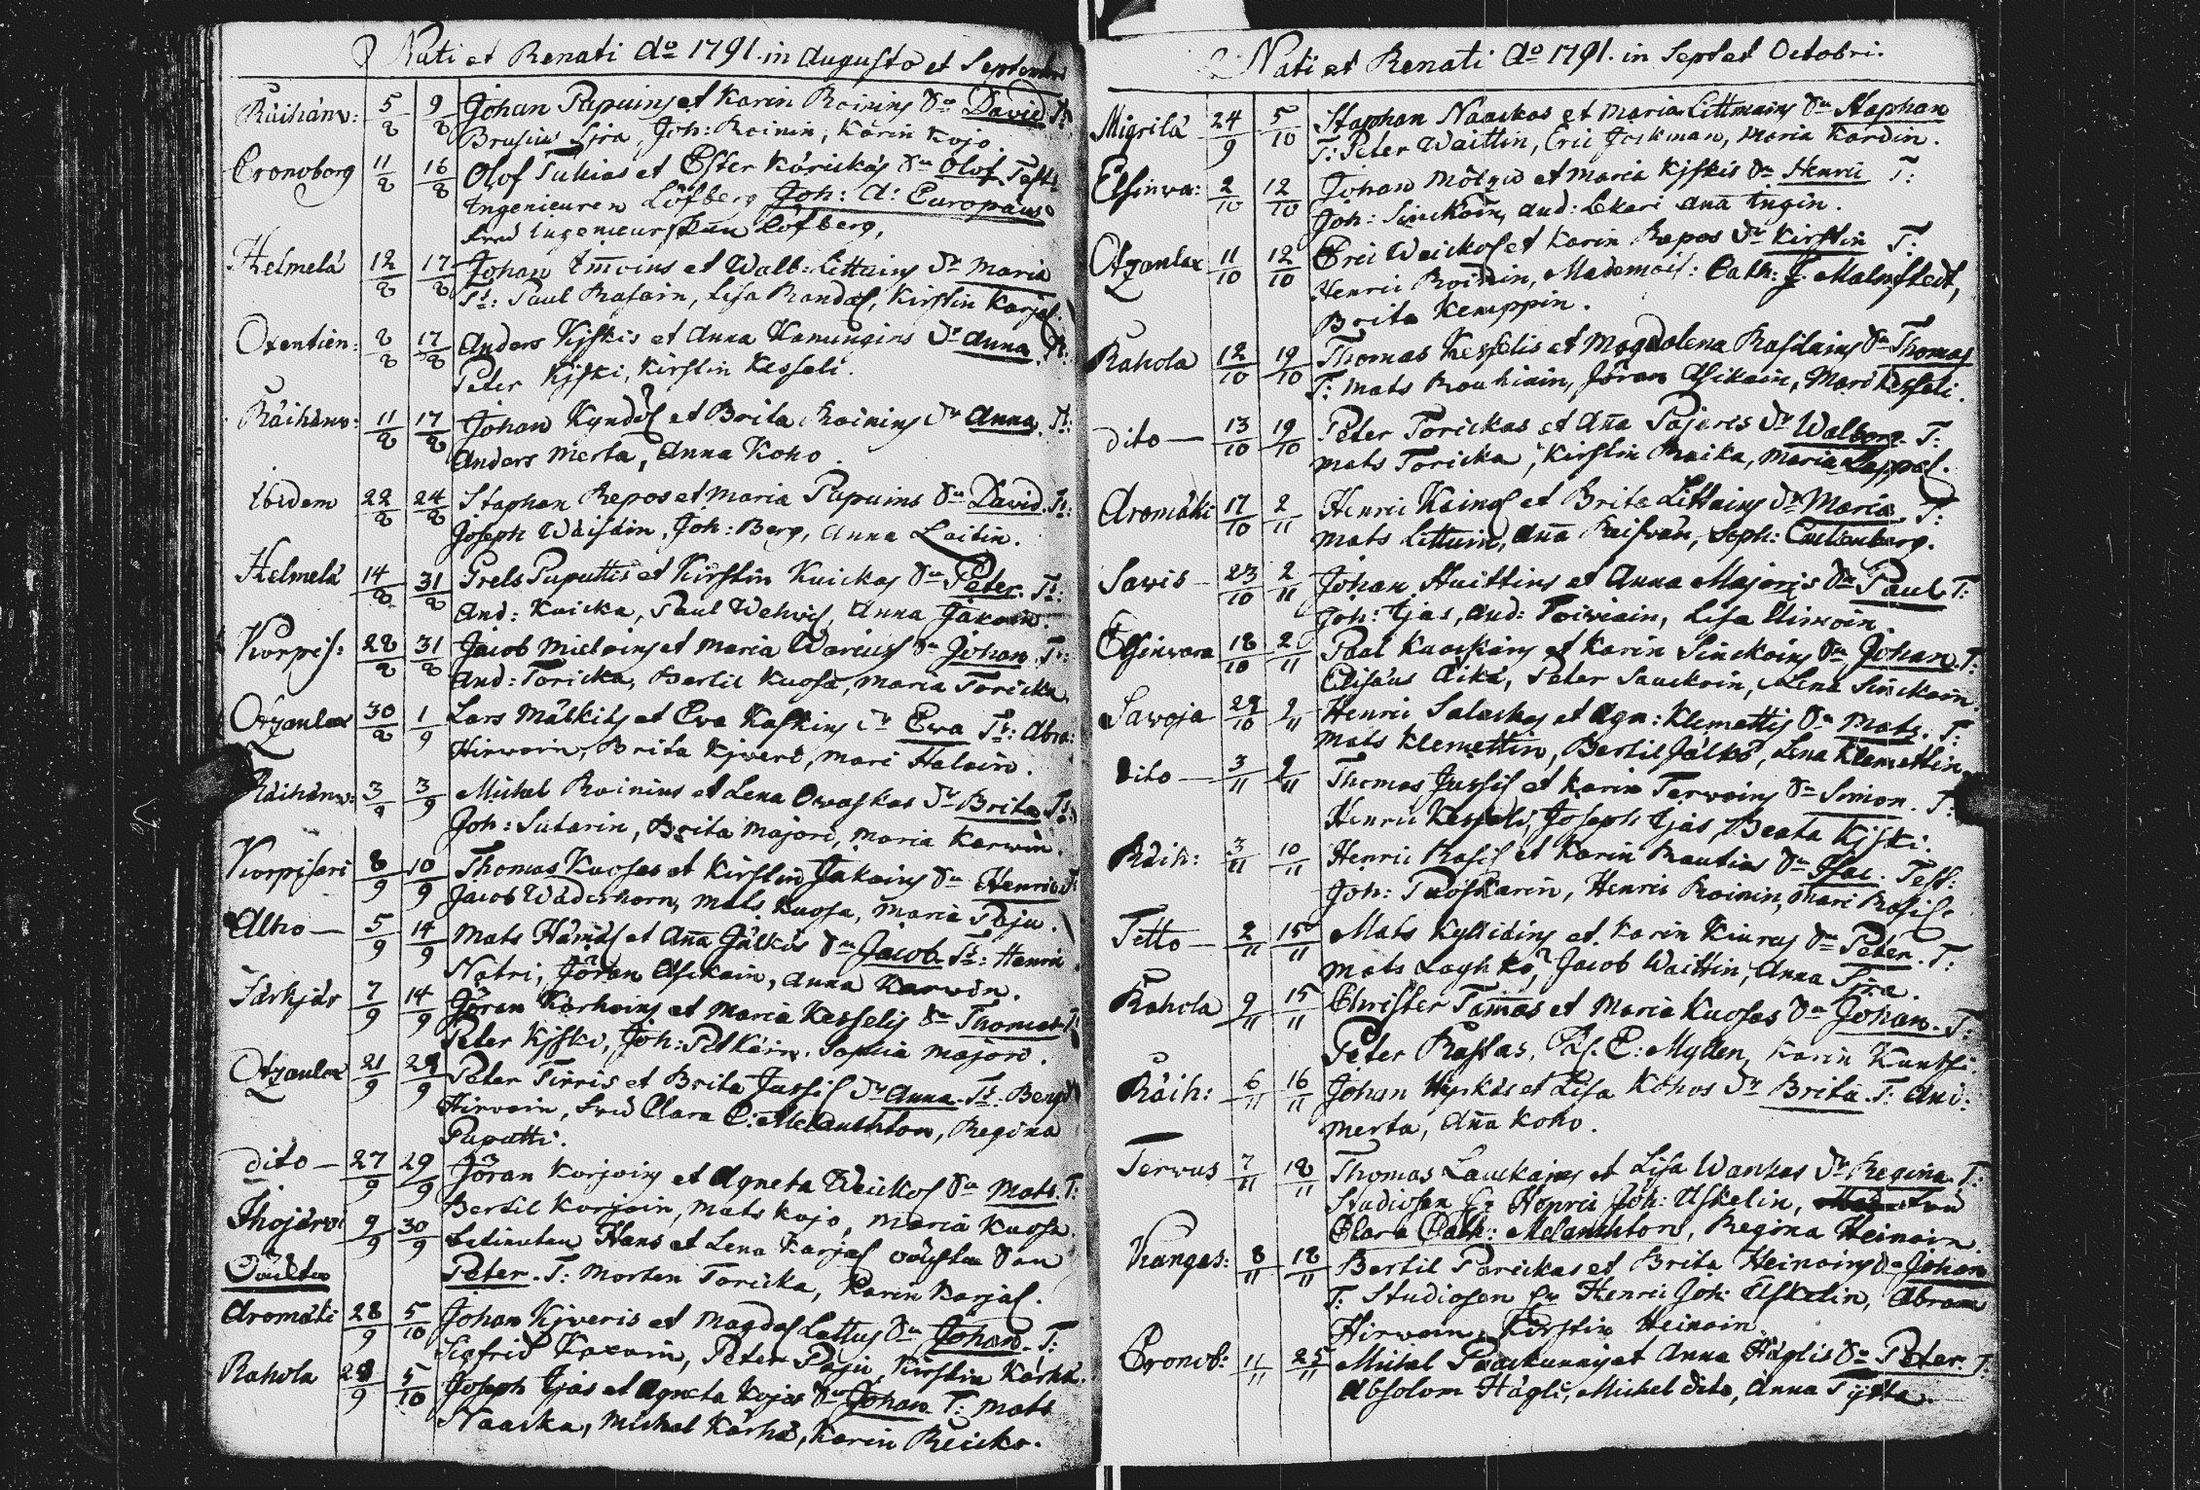 Nati et Renati Ao 1791. in Augusto et Septembr
Räihänv: 5/8 9/8 Johan Pupuins et Karin Roinins Sn David Tt:
Brusius Sjra, Joh: Roinin, Karin Kojo.
Cronoborg 11/8 16/8 Olof Tukias et Ester Kärickäs Sn Olof Test:
Ingenieuren Löfberg Joh: A: Europæus
Frud Ingenieurskan Löfberg,
Helmelä 12/8 17/8 Johan Im̄oins et Walb: Littuins Dr Maria
Tt: Paul Rasain, Lisa Randal, Kirstin Karjal.
Oxentien: 8/8 17/8 Anders Kjskis et Anna Hamungins Dr Anna Tt:
Peter Kjski, Kirstin Kesseli.
Räihänv: 11/8 17/8 Johan Kyndös et Brita Roinins Dr Anna. Tt:
Anders Merta, Anna Koho.
Ibidem 22/8 24/8 Staphan Repos et Maria Pupuins Sn David. Tt:
Joseph Wäisäin, Joh: Berg, Anna Laitin.
Helmelä 14/8 31/8 Grels Puputtis et Kirstin Kuickas Sn Peter. Tt:
And: Kuicka, Paul Wehvil, Anna Jakoin.
Korpis: 28/8 31/8 Jacob Mieloins et Maria Warius Sn Johan. Tt:
And: Toricka, Bertil Kuosa, Maria Toricka.
Otzanlax 30/8 1/9 Lars Mälkiäs et Eva Kaskins Dr Ewa Tt: Abra:
Hirwoin, Brita Kjveri, Mari Haloin.
Räihänv: 3/9 3/9 Michel Roinins et Lena Owaskas Dr Brita Tt:
Joh: Sutarin, Brita Majori, Maria Karwin.
Korpisari 8/9 10/9 Thomas Kuosas et Kirstin Jakoins Sn Henric T:
Jacob Wäderhorn, Mats Kuosa, Maria Paju.
Alho — 5/9 14/9 Mats Hämäl et An̄a Jälkös Sn Jacob Tt: Henric
Natri, Jöran Asikain, Anna Karwin.
Särkjär 7/9 14/9 Jöran Karhoins et Maria Kesselis Sn Thomas T:
Peter Kjski, Joh: Pitkäin. Sophia Majori.
Otzanlax 21/9 28/9 Peter Tirris et Brita Jussil Dr Anna. Tt: Bengt
Hirvoin, Frud Clara C: Melanchton, Regina
Puputti.
dito — 27/9 29/9 Jöran Korjoins et Agneta Weickos Sn Mats. T:
Bertil Korjoin, Mats Kojo, Maria Kuosa.
Ihojärvi 9/9 30/9 Letinuten Hans et Lena Karjal oächta Son
Oäckta Peter. T: Morten Toricka, Karin Karjal.
Aromäki 28/9 5/10 Johan Kjveris et Magdal Lattus Sn Johan. T:
Sigfrid Kaxoin, Peter Paju, Kirstin Kärhä.
Rahola 28/9 5/10 Joseph Ijäs et Agneta Kojos Sn Johan. T: Mats
Naacka, Michel Kärhä, Karin Reicko.
Nati et Renati Ao 1791. in Sept et Octobri.
Migrilä 24/9 5/10 Staphan Naackas et Maria Littmains Sn Staphan
T: Peter Waittin, Eric Jockman, Maria Kardin.
Elsinwa: 2/10 12/10 Johan Mötzid et Maria Kjskis Sn Henric T:
Joh: Sinckoin, And: Ekari An̄a Ingin.
Otzanlax 11/10 12/10 Eric Weickos et Karin Repos Dr Kirstin T:
Henric Roinin, Mademois: Cath: J: Malmstedt,
Brita Kemppin.
Rahola 12/10 19/10 Thomas Kesselis et Magdalena Rasilains Sn Thomas
T: Mats Rouhiain, Jöran Asikain, Mari Kesseli.
dito — 13/10 19/10 Peter Torickas et An̄a Pajeris Dr Walborg. T:
Mats Toricka, Kirstin Raika, Maria Lappal.
Aromäki 17/10 2/11 Henric Kainos et Brita Littuins Dr Maria. T:
Mats Littuin, An̄a Raisvän, Soph: Cutenberg.
Sawis 23/10 2/11 Johan Huittins et Anna Majoris Sn Paul. T:
Joh: Ijäs, And: Toiviain, Lisa Himoin.
Elsinvara 18/10 2/11 Paul Kuoskins et Karin Sinckoins Sn Johan. T:
Elisæus Aikä, Peter Sauckoin, Lena Sinckoin.
Sawoja 29/10 2/11 Henric Salackas et Agn: Klemettis Sn Mats. T:
Mats Klemettin, Bertil Jälkö, Lena Klemettin.
dito — 3/11 9/11 Thomas Jussil et Karin Terwoins Sn Simon. T:
Henric Kesseli, Joseph Ijäs, Beata Kjski.
Räih: 3/11 10/11 Henric Rasil et Karin Rautias Sn Isac. Test:
Joh: Puoskarin, Henric Roinin, Mari Rasil.
Tetto — 2/11 15/11 Mats Kylliäins et Karin Kiurus Sn Peter. T:
Mats Laghko, Jacob Waittin, Anna Sjra.
Rahola 9/11 15/11 Christer Tam̄as et Maria Kuosas Sn Johan. T:
Peter Rastas, Ps. E: Mylden, Karin Kuntsi.
Räih: 6/11 16/11 Johan Hyrkäs et Lisa Kohos Dr Brita. T: And:
Merta, An̄a Koho.
Tervus 7/11 18/11 Thomas Lauckains et Lisa Wankas Dr Regina. T:
Studiosen Hr Henric Joh: Askelin, Frud
Clara Cath: Melanchton, Regina Heinoin.
Kangas: 8/11 18/11 Bertil Parickas et Brita Heinoins Sn Johan
T: Studiosen Hr Henric Joh: Askelin, Abram
Hirwoin, Kirstin Heinoin.
Cronob: 11/11 25/11 Michel Paackunais et Anna Häglis Sn Peter. T:
Absolom Hägli, Michel dito, Anna Tyttä.